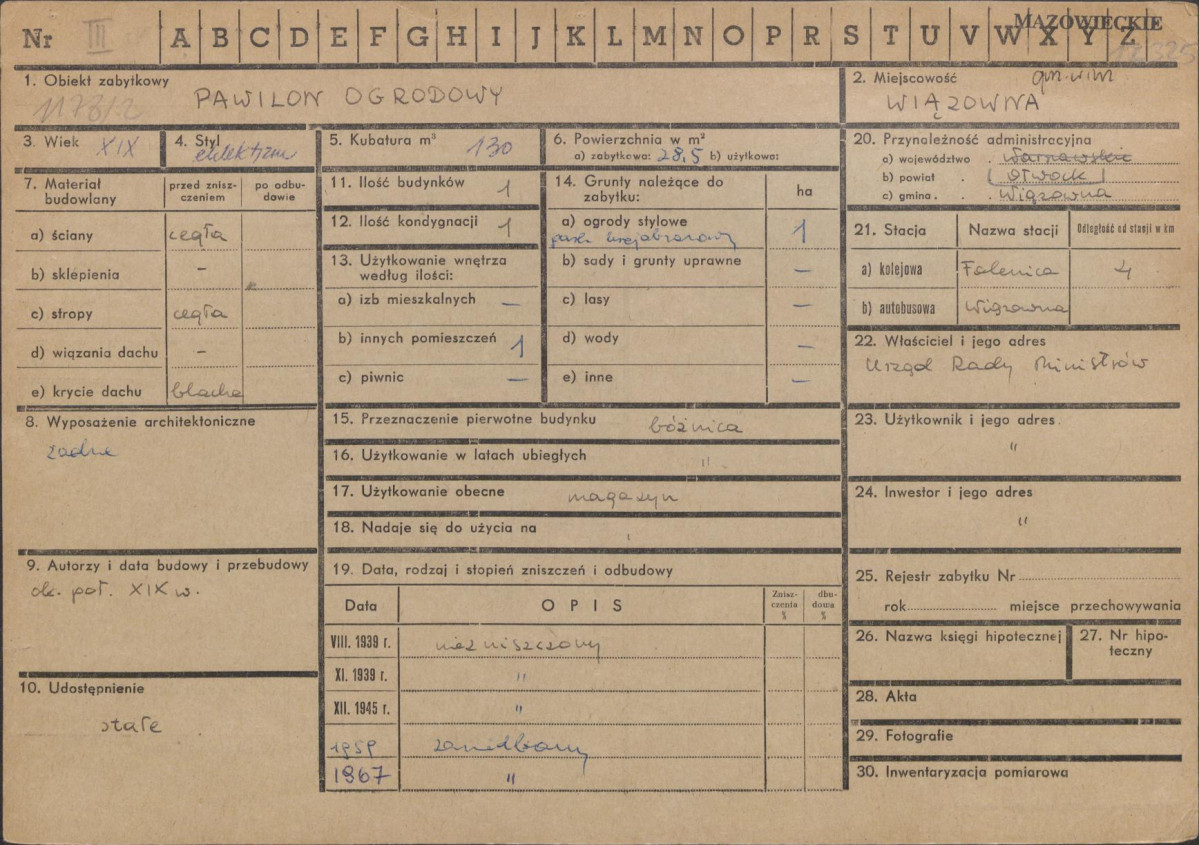 MAZOWIECKIE
Nr III A B C D E F G H I J K L M N O P R S T U V W X Y Z
1. Obiekt zabytkowy
PAWILON OGRODOWY
2. Miejscowość
WIĄZOWNA
3. Wiek XIX
4. Styl eklektyzm
5. Kubatura m³ 130
6. Powierzchnia w m²
a) zabytkowa: 28,5 b) użytkowa:
20. Przynależność administracyjna
a) województwo . Warszawskie
b) powiat . (Otwock)
c) gmina . . Wiązowna
7. Materiał budowlany
przed znisz-czeniem
po odbu-dowie
a) ściany cegła
b) sklepienia –
c) stropy cegła
d) wiązania dachu –
e) krycie dachu blacha
11. Ilość budynków 1
12. Ilość kondygnacji 1
13. Użytkowanie wnętrza według ilości:
a) izb mieszkalnych –
b) innych pomieszczeń 1
c) piwnic –
14. Grunty należące do zabytku: ha
a) ogrody stylowe 1
park krajobrazowy
b) sady i grunty uprawne –
c) lasy –
d) wody –
e) inne –
21. Stacja Nazwa stacji Odległość od stacji w km
a) kolejowa Falenica 4
b) autobusowa Wiązowna
22. Właściciel i jego adres
Urząd Rady Ministrów
8. Wyposażenie architektoniczne
żadne
15. Przeznaczenie pierwotne budynku bóżnica
16. Użytkowanie w latach ubiegłych "
17. Użytkowanie obecne magazyn
18. Nadaje się do użycia na
23. Użytkownik i jego adres
"
24. Inwestor i jego adres
"
9. Autorzy i data budowy i przebudowy
ok. poł. XIX w.
19. Data, rodzaj i stopień zniszczeń i odbudowy
Data OPIS Znisz-czenia % dbu-dowa %
VIII. 1939 r. niezniszczony
XI. 1939 r. "
XII. 1945 r. "
1959 zaniedbany
1967 "
25. Rejestr zabytku Nr
rok miejsce przechowywania
26. Nazwa księgi hipotecznej
27. Nr hipo-teczny
10. Udostępnienie
stałe
28. Akta
29. Fotografie
30. Inwentaryzacja pomiarowa